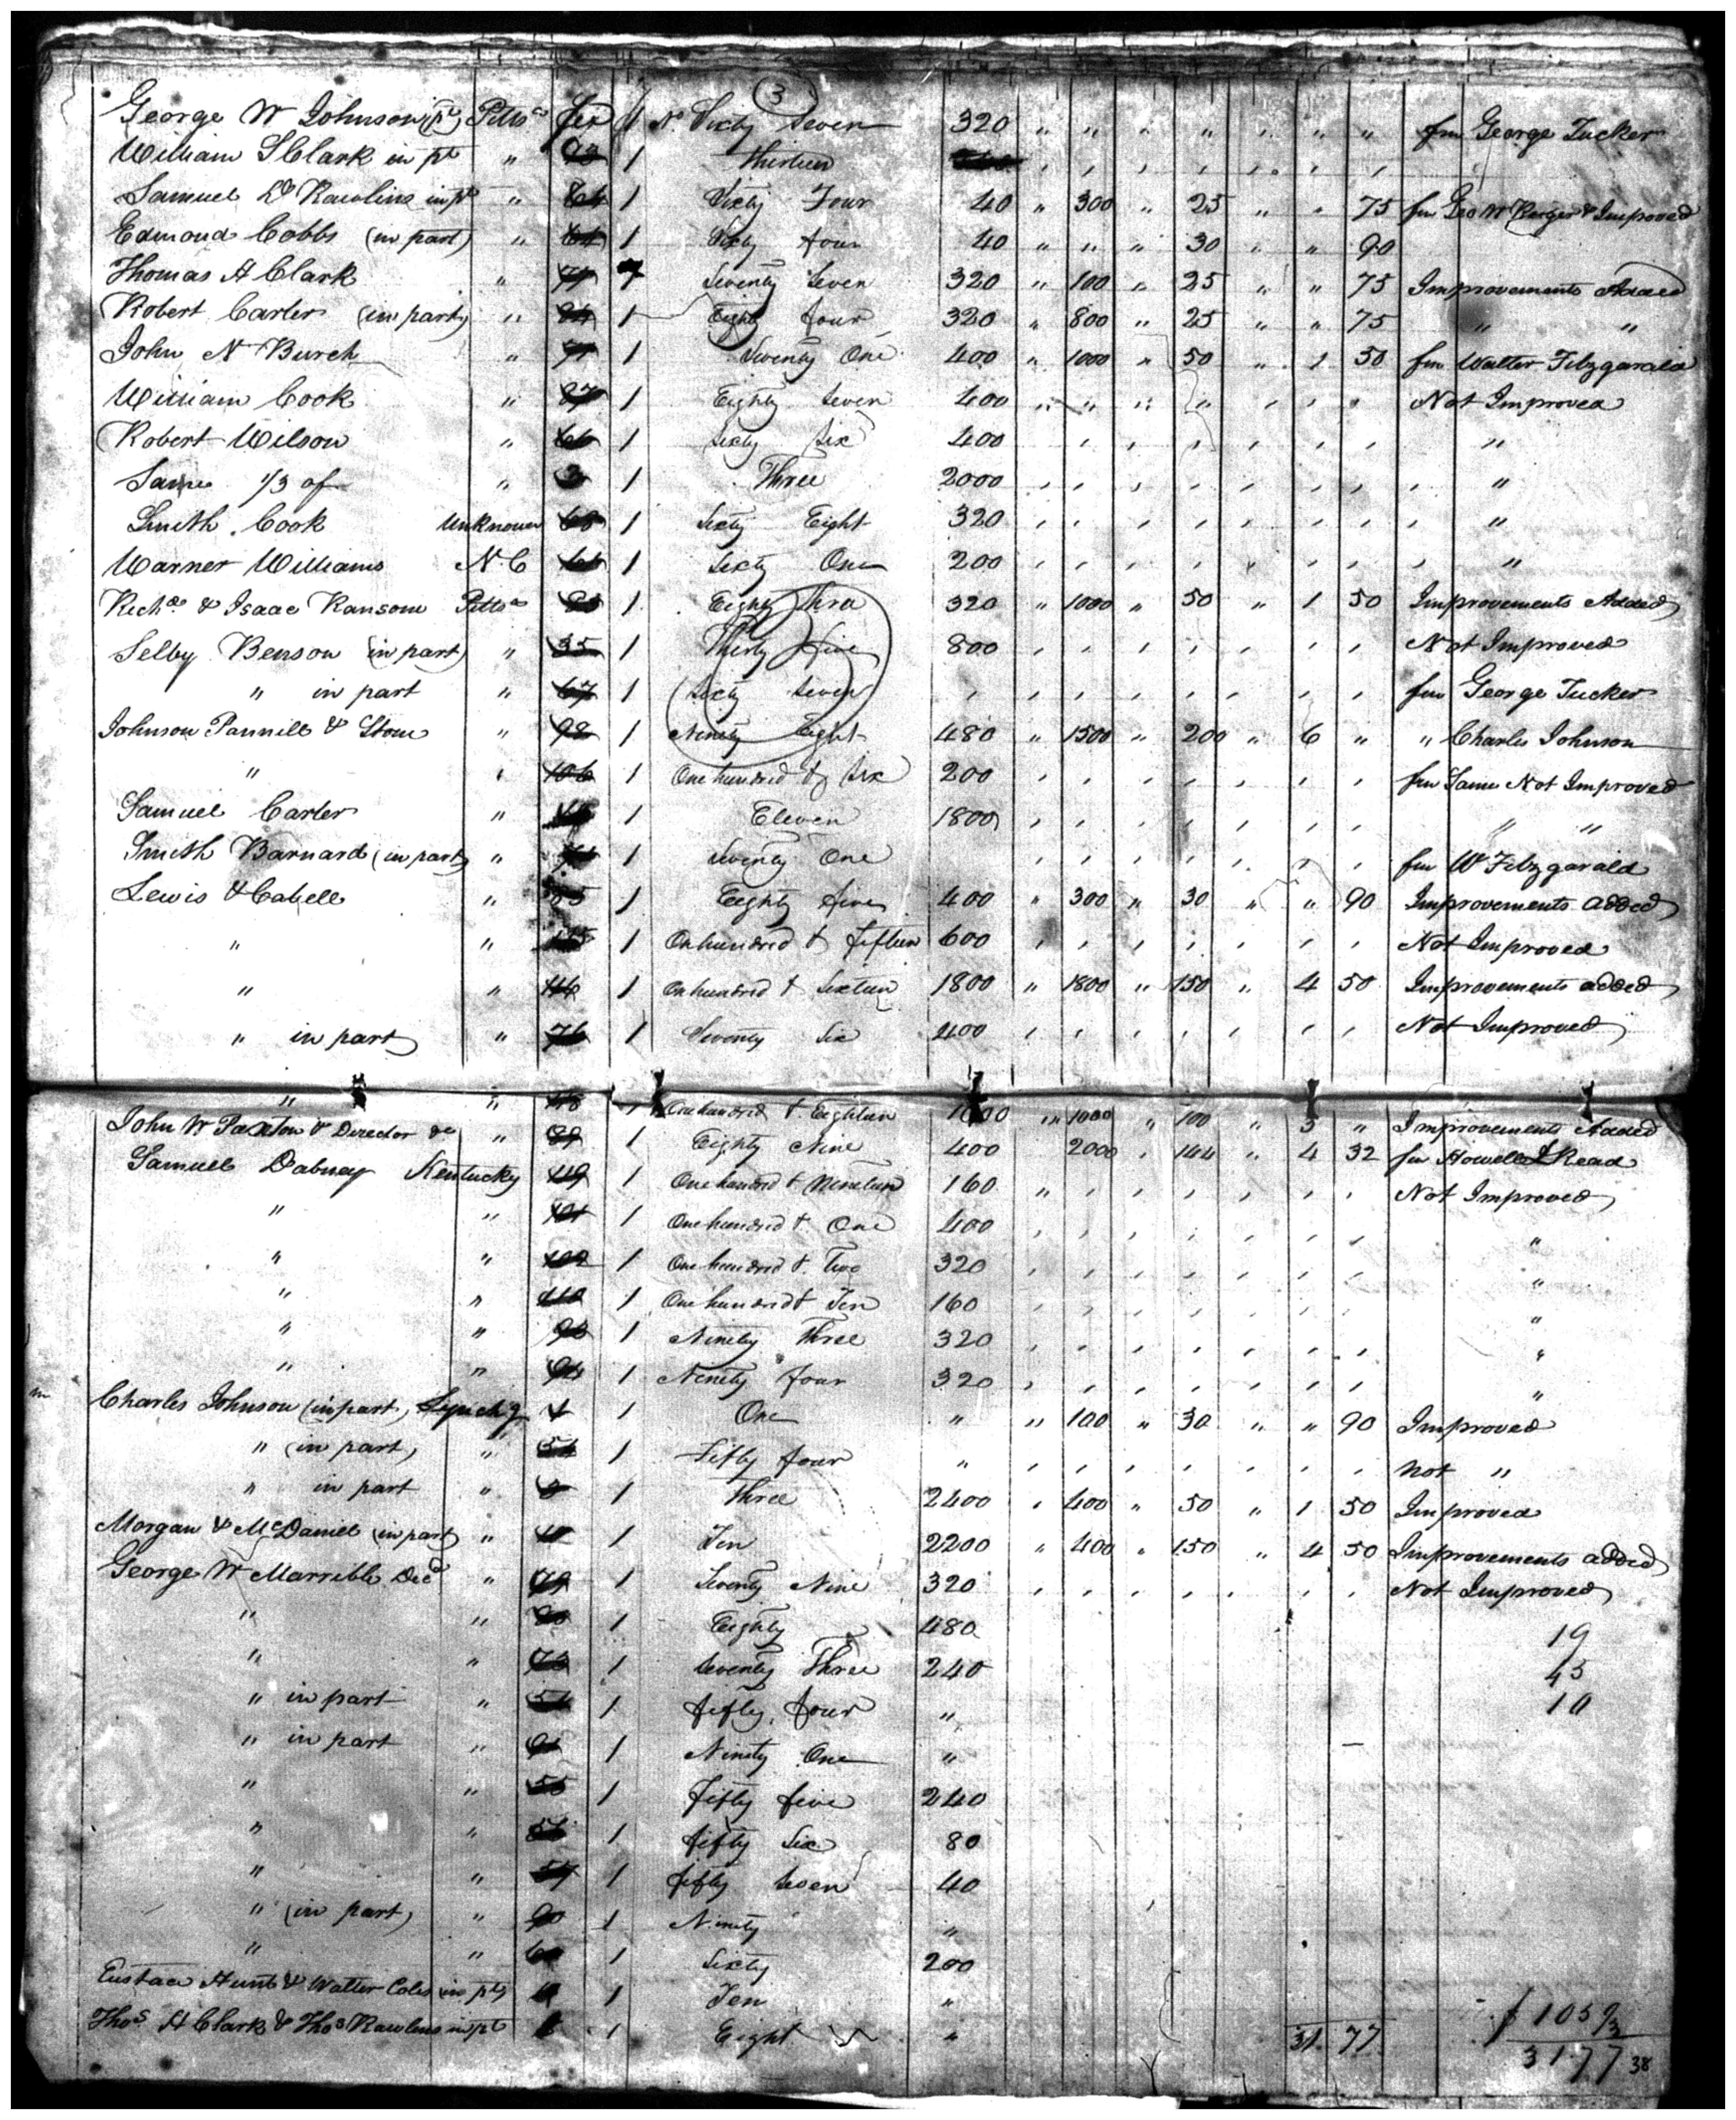 3
George W Johnson (pt) Pitts a 1 No Sixty Seven 320 " " " " " " " fm George Tucker
William S Clark in pt " 1 Thirteen
Samuel D Rawlins in pt " 64 1 Sixty Four 40 " 300 " 25 " " 75 fm Geo W Barger & Improved
Edmond Cobbs (in part) " 64 1 Sixty four 40 " " " 30 " " 90
Thomas H Clark " 77 1 Seventy Seven 320 " 100 " 25 " " 75 Improvements Added
Robert Carter (in part) " 84 1 Eighty four 320 " 800 " 25 " " 75 " "
John N Burch " 71 1 Seventy One 400 " 1000 " 50 " 1 50 fm Walter Fitzgarald
William Cook " 87 1 Eighty Seven 400 " " " " " " " Not Improved
Robert Wilson " 66 1 Sixty Six 400 "
Same 1/3 of " 3 1 Three 2000 "
Smith Cook Unknown 68 1 Sixty Eight 320 "
Warner Williams N.C 61 1 Sixty One 200 "
Richd & Isaac Ransom Pitts a 83 1 Eighty Thre 320 " 1000 " 50 " 1 50 Improvements Added
Selby Benson (in part) " 35 1 Thirty five 800 Not Improved
" in part " 67 1 Sixty Seven fm George Tucker
Johnson Pannill & Stone " 98 1 Ninety Eight 480 " 1500 " 200 " 6 " " Charles Johnson
" " 106 1 One hundred & Six 200 fm Same Not Improved
Samuel Carter " 11 1 Eleven 1800 " "
Smith Barnard (in part) " 71 1 Seventy One fm W Fitzgarald
Lewis & Cabell " 85 1 Eighty five 400 " 300 " 30 " " 90 Improvements added
" " 115 1 On hundred & fifteen 600 Not Improved
" " 116 1 On hundred & Sixteen 1800 " 1800 " 150 " 4 50 Improvements added
" in part " 76 1 Seventy Six 400 Not Improved
" " 118 1 One hundred & Eighteen 1000 " 1000 " 100 " 3 " Improvements Added
John W Paxton & Director &c " 89 1 Eighty Nine 400 2000 " 144 " 4 32 fm Howell & Read
Samuel Dabney Kentucky 119 1 One hundred & Nineteen 160 " Not Improved
" " 101 1 One hundred & One 400 "
" " 102 1 One hundred & Two 320 "
" " 110 1 One hundred & Ten 160 "
" " 93 1 Ninety Three 320 "
" " 94 1 Ninety four 320 "
Charles Johnson (in part) Lynchg 1 1 One " " 100 " 30 " " 90 Improved
" (in part) " 54 1 Fifty four " Not "
" in part " 3 1 Three 2400 " 400 " 50 " 1 50 Improved
Morgan & McDaniel (in part) " 10 1 Ten 2200 " 400 " 150 " 4 50 Improvements added
George W Marrible Decd " 79 1 Seventy Nine 320 Not Improved
" " 80 1 Eighty 480 19
" " 73 1 Seventy Three 240 45
" in part " 54 1 fifty four " 10
" in part " 91 1 Ninety One "
" " 55 1 fifty five 240
" " 56 1 fifty Six 80
" " 57 1 fifty Seven 40
" (in part) " 90 1 Ninety "
" " 60 1 Sixty 200
Eustace Hunt & Walter Coles in pt 1 Ten " $ 1059
Thos H Clark & Thos Rawlins in pt 1 Eight " 31 77 31.77 38